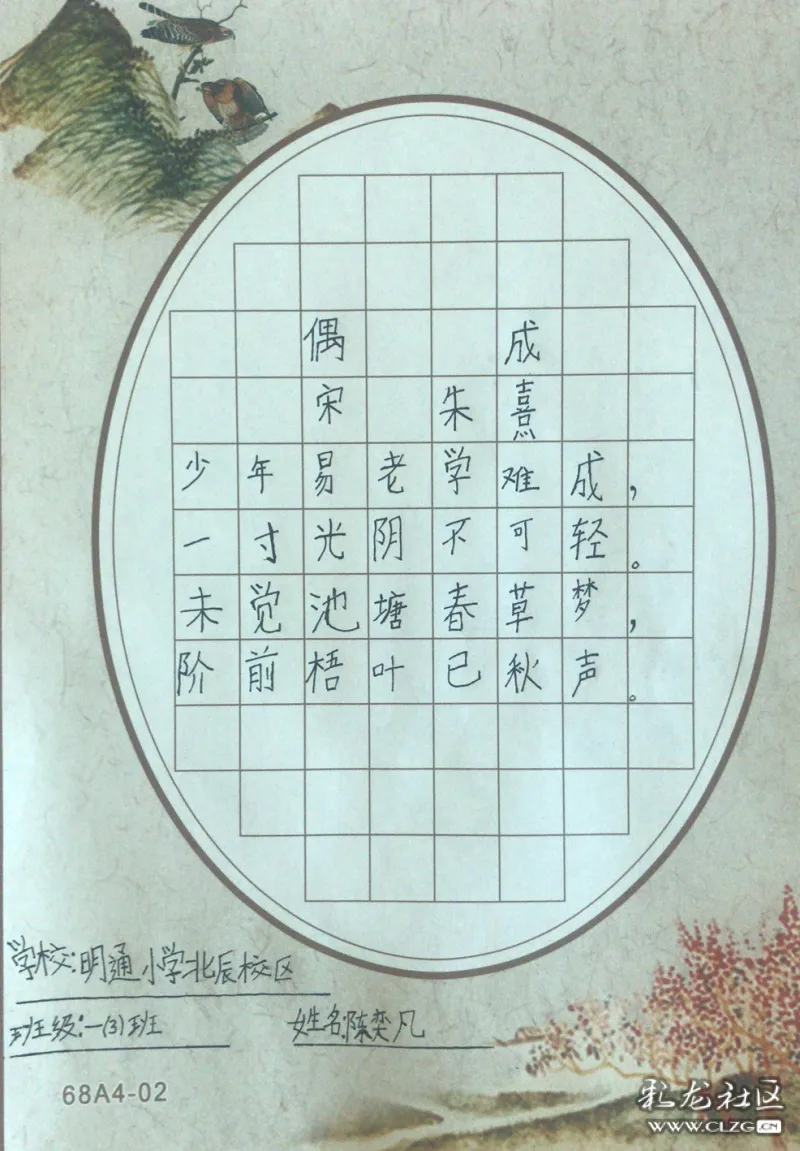 偶成
宋 朱熹
少年易老学难成，
一寸光阴不可轻。
未觉池塘春草梦，
阶前梧叶已秋声。
学校:明通小学北辰校区
班级:一(3)班 姓名:陈奕凡
68A4-02
彩龙社区
WWW.CLZG.CN